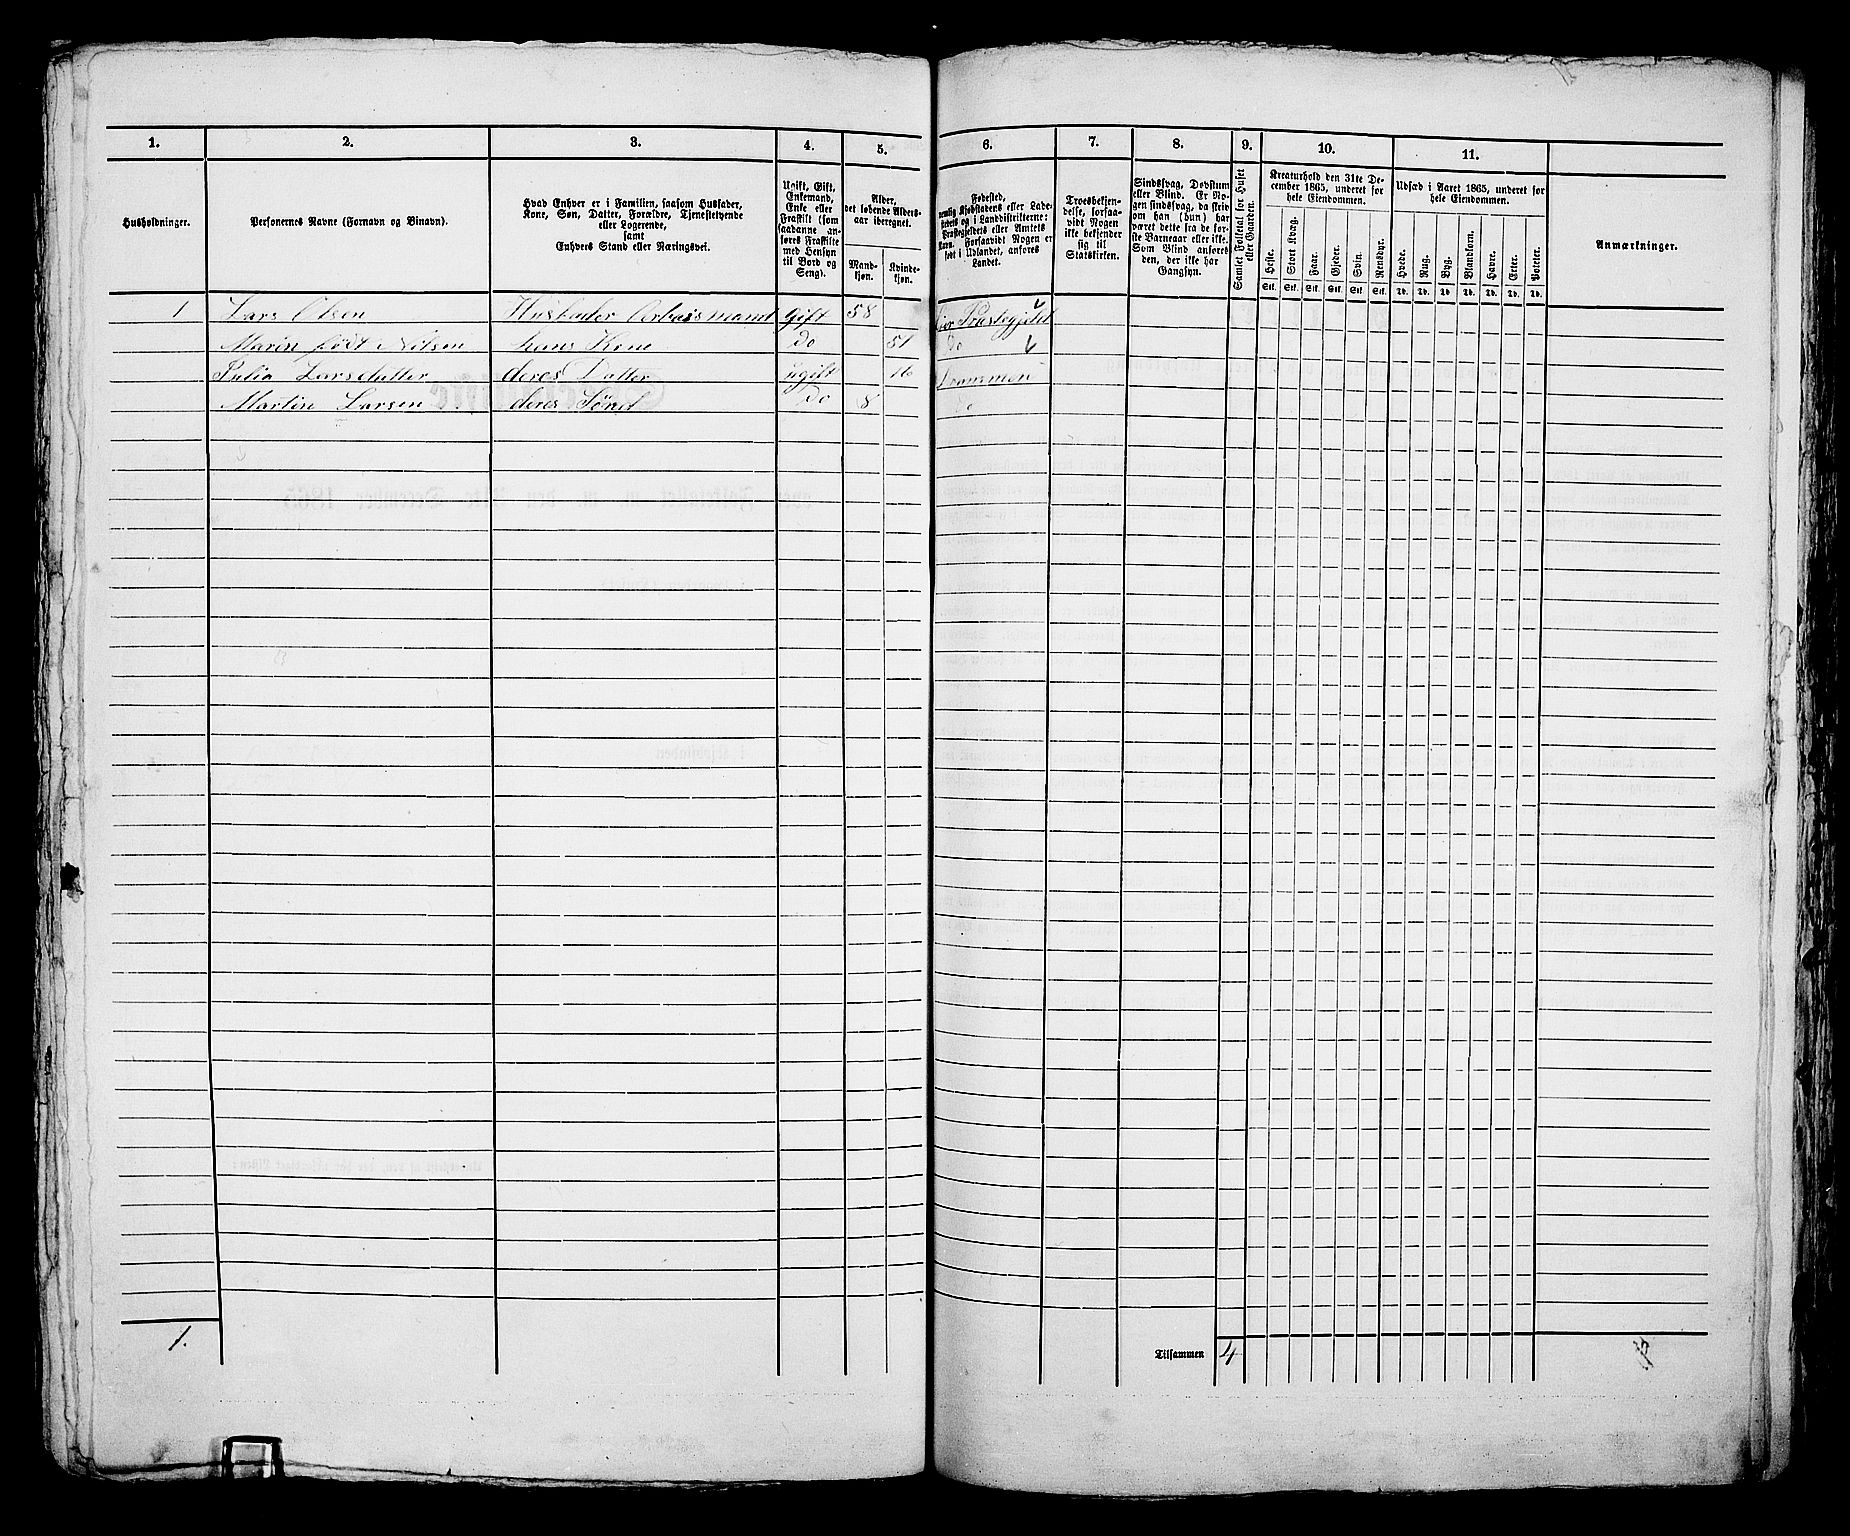 1.
2.
3.
4.
5.
6.
7.
8.
9.
10.
11.
Husholdninger.
Personernes Navne (Fornavn og Binavn).
Hvad Enhver er i Familien, saasom Husfader,
Kone, Søn, Datter, Forældre, Tjenestetyende
eller Logerende,
samt
Enhvers Stand eller Næringsvei.
Ugift, Gift,
Enkemand,
Enke eller
Fraskilt (som
saadanne an-
føres Fraskilte
med Hensyn
til Bord og
Seng).
Alder,
det løbende Alders-
aar iberegnet.
Mand-
kjøn.
Kvinde-
kjøn.
Fødested,
nemlig Kjøbstadens eller Lade-
stedets og i Landdistrikterne:
Præstegjeldets eller Amtets
Navn. Forsaavidt Nogen er
født i Udlandet, anføres
Landet.
Troesbekjen-
delse, forsaa-
vidt Nogen
ikke bekjender
sig til
Statskirken.
Sindssvag, Døvstum
eller Blind. Er No-
gen sindssvag, da skriv
om han (hun) har
været dette fra de før-
ste Barneaar eller ikke.
Som Blind anføres
den, der ikke har
Gangsyn.
Samlet Folketal for Huset
eller Gaarden.
Kreaturhold den 31te De-
cember 1865, underet for
hele Eiendommen.
Heste.
Stort Kvæg.
Faar.
Gjeder.
Svin.
Rensdyr.
Stk. Stk. Stk. Stk. Stk. Stk.
Udsæd i Aaret 1865, underet for
hele Eiendommen.
Hvede.
Rug.
Byg.
Blandkorn.
Havre.
Erter.
Poteter.
Td. Td. Td. Td. Td. Td. Td.
Anmærkninger.
1 Lars Olsen Husfader Arbeismand Gift 58 Eier Præstegjeld
Marin født Nilsen hans Kone Do 51 Do
Julia Larsdatter deres Datter ugift 16 Drammen
Martin Larsen deres Sønd Do 8 Do
1.
Tilsammen 4